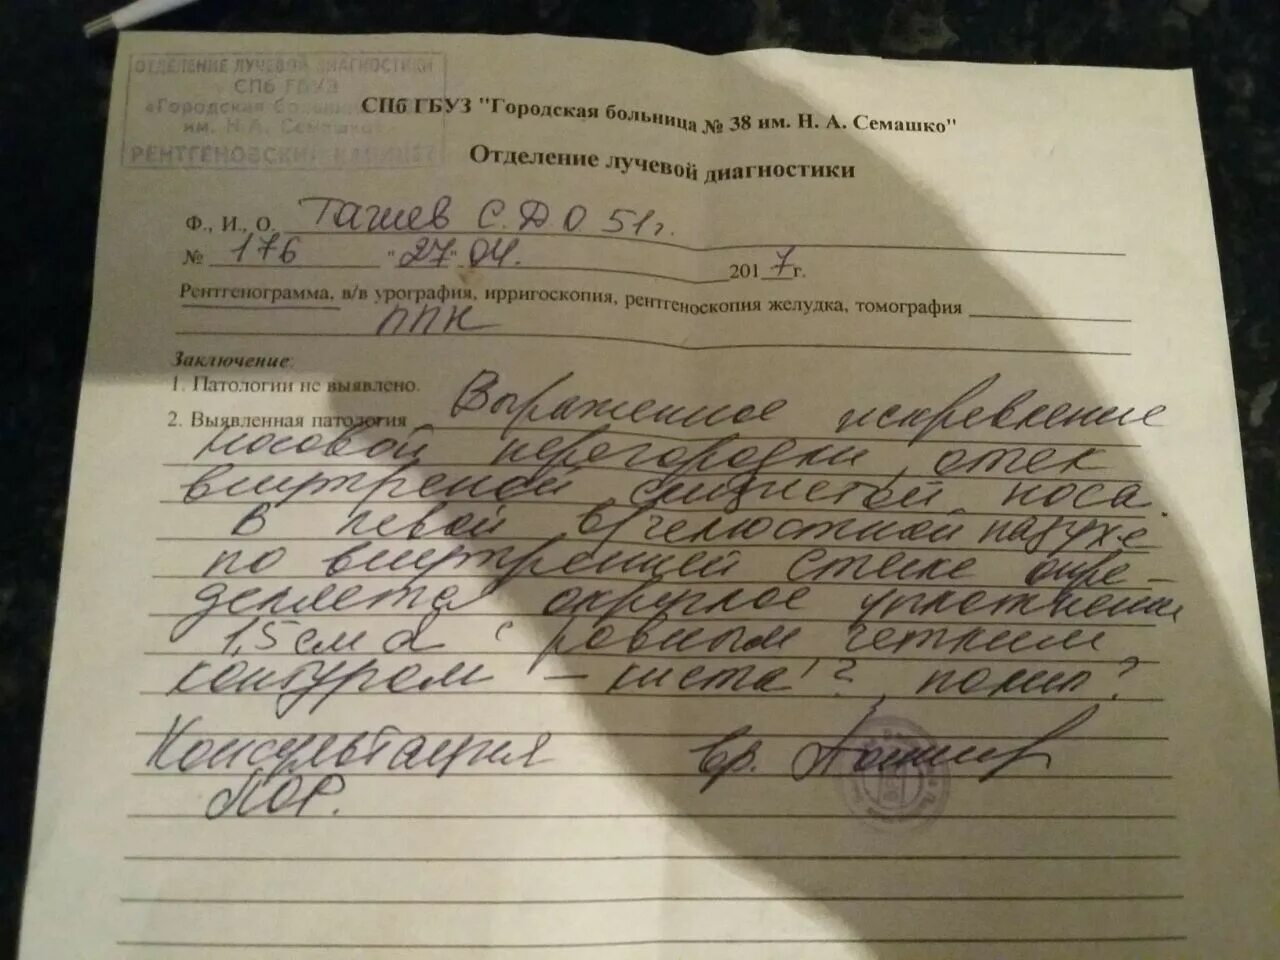 ОТДЕЛЕНИЕ ЛУЧЕВОЙ ДИАГНОСТИКИ
СПб ГБУЗ
«Городская больница
им. Н.А. Семашко»
РЕНТГЕНОВСКИЙ КАБИНЕТ
СПб ГБУЗ "Городская больница № 38 им. Н. А. Семашко"
Отделение лучевой диагностики
Ф., И., О. Тагиев С. Д. О 51г.
№ 176 "27" 04. 2017г.
Рентгенограмма, в/в урография, ирригоскопия, рентгеноскопия желудка, томография
ППН
Заключение:
1. Патологии не выявлено.
2. Выявленная патология Выраженное искревление
носовой перегородки, отек
внутреней слизистой носа.
В левой в/челюстной пазухе
по внутренней стенке опре-
деляется округлое уплотнение
1,5 см d с ровным четким
контуром – киста? полип?
Консультация вр.
ЛОР.